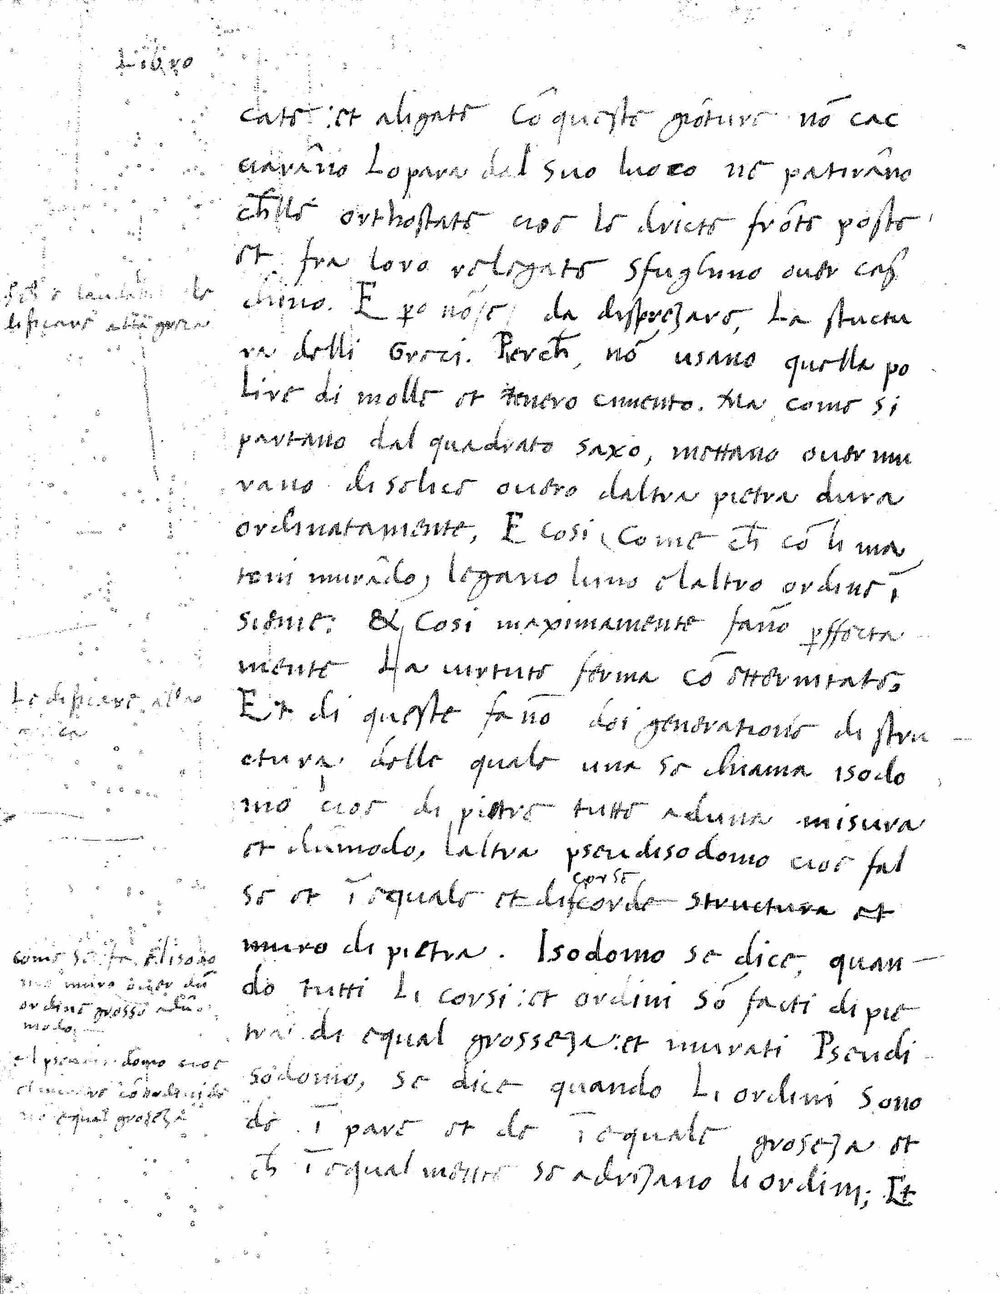 Libro
cate: et aligate cō queste giōture nō cac
ciarāno Lopara dal suo luoco ne patirāno
ch̄ lle orthostate cioe le dricte frōte poste
et fra loro relegate sfughino over cas
chino. E p̱o nō e da disprezare, La stuctu
ra delli Greci. Perch̄, nō usano quella po
Lire di molle et tenero cimento. Ma come si
partano dal quadrato saxo, mettano over mu
rano di selice overo daltra pietra dura
ordinatamente, E cosi, Come ch̄ cō li ma
toni murādo, legano luno elaltro ordine ī
sieme: & Cosi maximamente fanō p̱ffecta
mente La virtute ferma cō etternitate.
Et di queste fanō doi generatione di stru
ctura delle quale una se chiama isodo
mo cioe di pietre tutte aduna misura
et dūmodo, laltra pseudisodomo cioe fal
corse
se et īequale et discorde structura et
muro di pietra. Isodomo se dice, quan
do tutti Li corsi: et ordini sō facti di pie
tra di equal grosseza: et murati Pseudi
sodomo, se dice quando Li ordini sono
de ī pare et de īequale groseza et
ch̄ īequalmente se adrizano li ordini; Et
e laudabile
difficare alla greca
Le dificare
come se fa Elisodo
mo muro over dū
ordine grosso adūo
modo
el pseudisodomo cioe
el muro cō ordini de
equal groseza